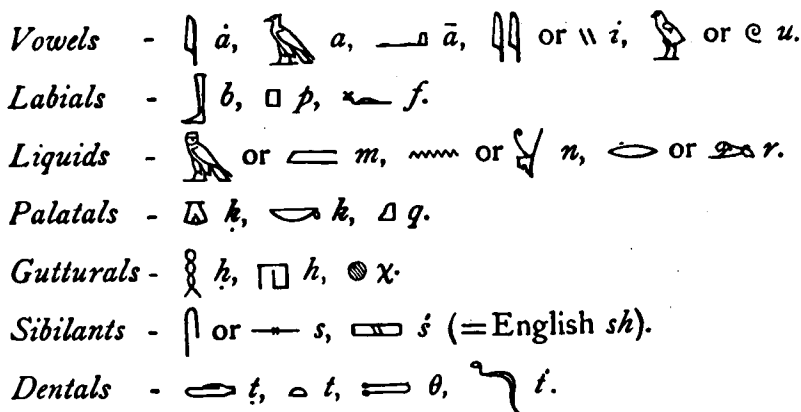 Vowels - 𓇋 ȧ, 𓄿 a, 𓂝 ā, 𓇌 or 𓏭 i, 𓅱 or 𓏲 u.
Labials - 𓃀 b, 𓊪 p, 𓆑 f.
Liquids - 𓅓 or 𓐝 m, 𓈖 or 𓋔 n, 𓂋 or 𓃭 r.
Palatals - 𓎼 ḳ, 𓎡 k, 𓈎 q.
Gutturals - 𓎛 ḥ, 𓉔 h, 𓐍 χ.
Sibilants - 𓋴 or 𓊃 s, 𓈙 ś (=English sh).
Dentals - 𓂧 ṭ, 𓏏 t, 𓍿 θ, 𓆓 ṫ.